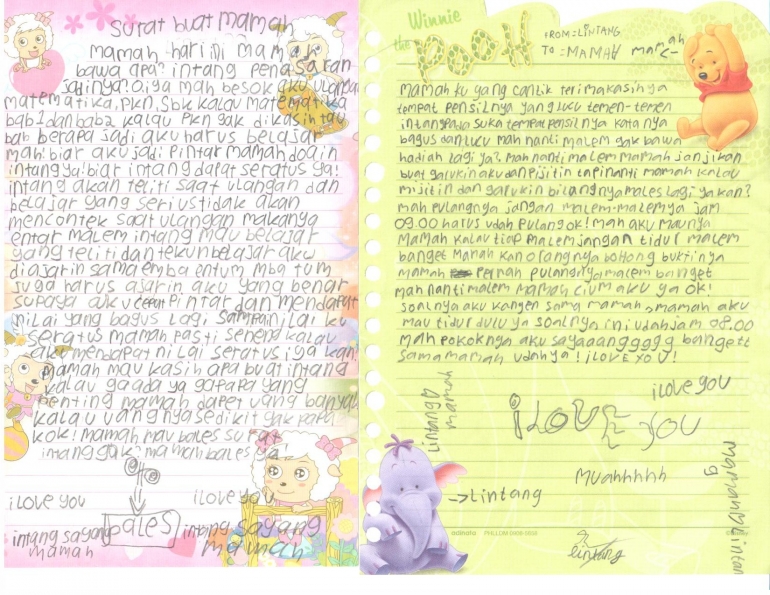 surat buat mamah
mamah hari ini mamah
bawa apa? intang penasaran
jadinya? o.iya mah besok aku ulangan
matematika, Pkn, Sbk kalau matematika
bab 1 dan bab 2 kalau Pkn gak di kasih tau
bab berapa jadi aku harus belajar
mah! biar aku jadi Pintar mamah doain
intang ya! biar intang dapat seratus ya!
intang akan teliti saat ulangan dan
belajar yang serius tidak akan
mencontek saat ulangan makanya
entar malem intang mau belajar
yang teliti dan tekun belajar aku
diajarin sama emba entum mba tum
juga harus ajarin aku yang benar
supaya aku cepat Pintar dan mendapat
nilai yang bagus lagi sampai nilai ku
seratus mamah pasti seneng kalau
aku mendapat nilai seratus iya kan!
mamah mau kasih apa buat intang
kalau gaada ya gapapa yang
penting mamah dapet uang banyak
kalau uangnya sedikit gak papa
kok! mamah mau bales surat
intang gak? mamah bales ya..
i love you i love you
BALES
intang sayang mamah
intang sayang mamah
Winnie
the POOH
FROM = LINTANG
TO = MAMAH mamah
<-
mamah ku yang cantik terimakasih ya
tempat pensilnya yang lucu temen-temen
intang pada suka tempat pensilnya katanya
bagus dan lucu mah nanti malem gak bawa
hadiah lagi ya? mah nanti malem mamah janjikan
buat garukin aku dan pijitin tapi nanti mamah kalau
mijitin dan garukin bilangnya males lagi ya kan?
mah pulangnya jangan malem-malem ya jam
09.00 harus udah pulang ok! mah aku maunya
mamah kalau tiap malem jangan tidur malem
banget mamah kan orangnya bohong buktinya
mamah pernah pulangnya malem banget
mah nanti malem mamah cium aku ya ok!
soalnya aku kangen sama mamah, mamah aku
mau tidur dulu ya soalnya ini udah jam 08.00
mah pokoknya aku sayaaangggg bangett
sama mamah udah ya! i LOVE YOU!
i LOVE you
i LOVE YOU
muahhhhh
-> Lintang
lintang
adinata PHLLDM 0808-0808